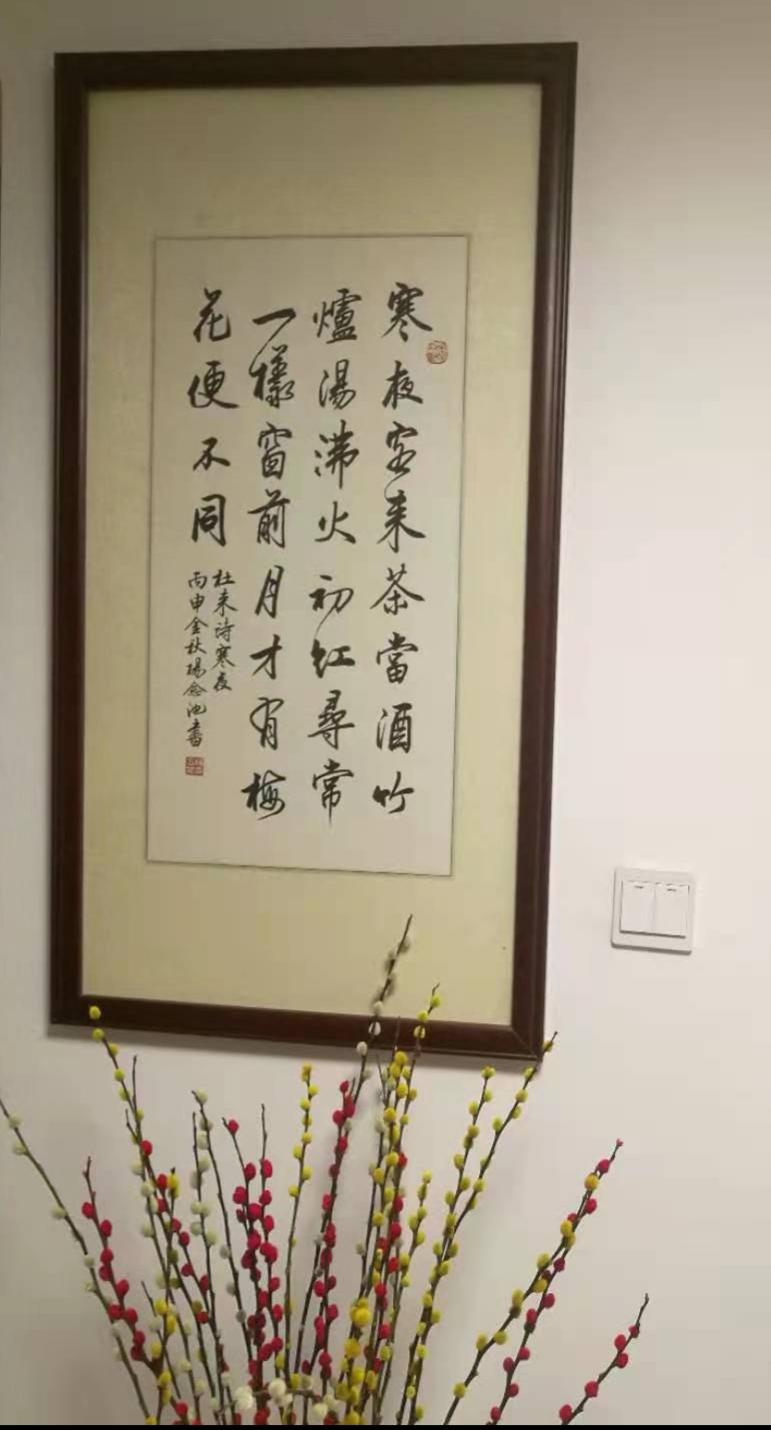 寒夜客来茶當酒竹
爐湯沸火初紅尋常
一樣窗前月才有梅
花便不同
杜耒诗寒夜
丙申金秋楊念池書